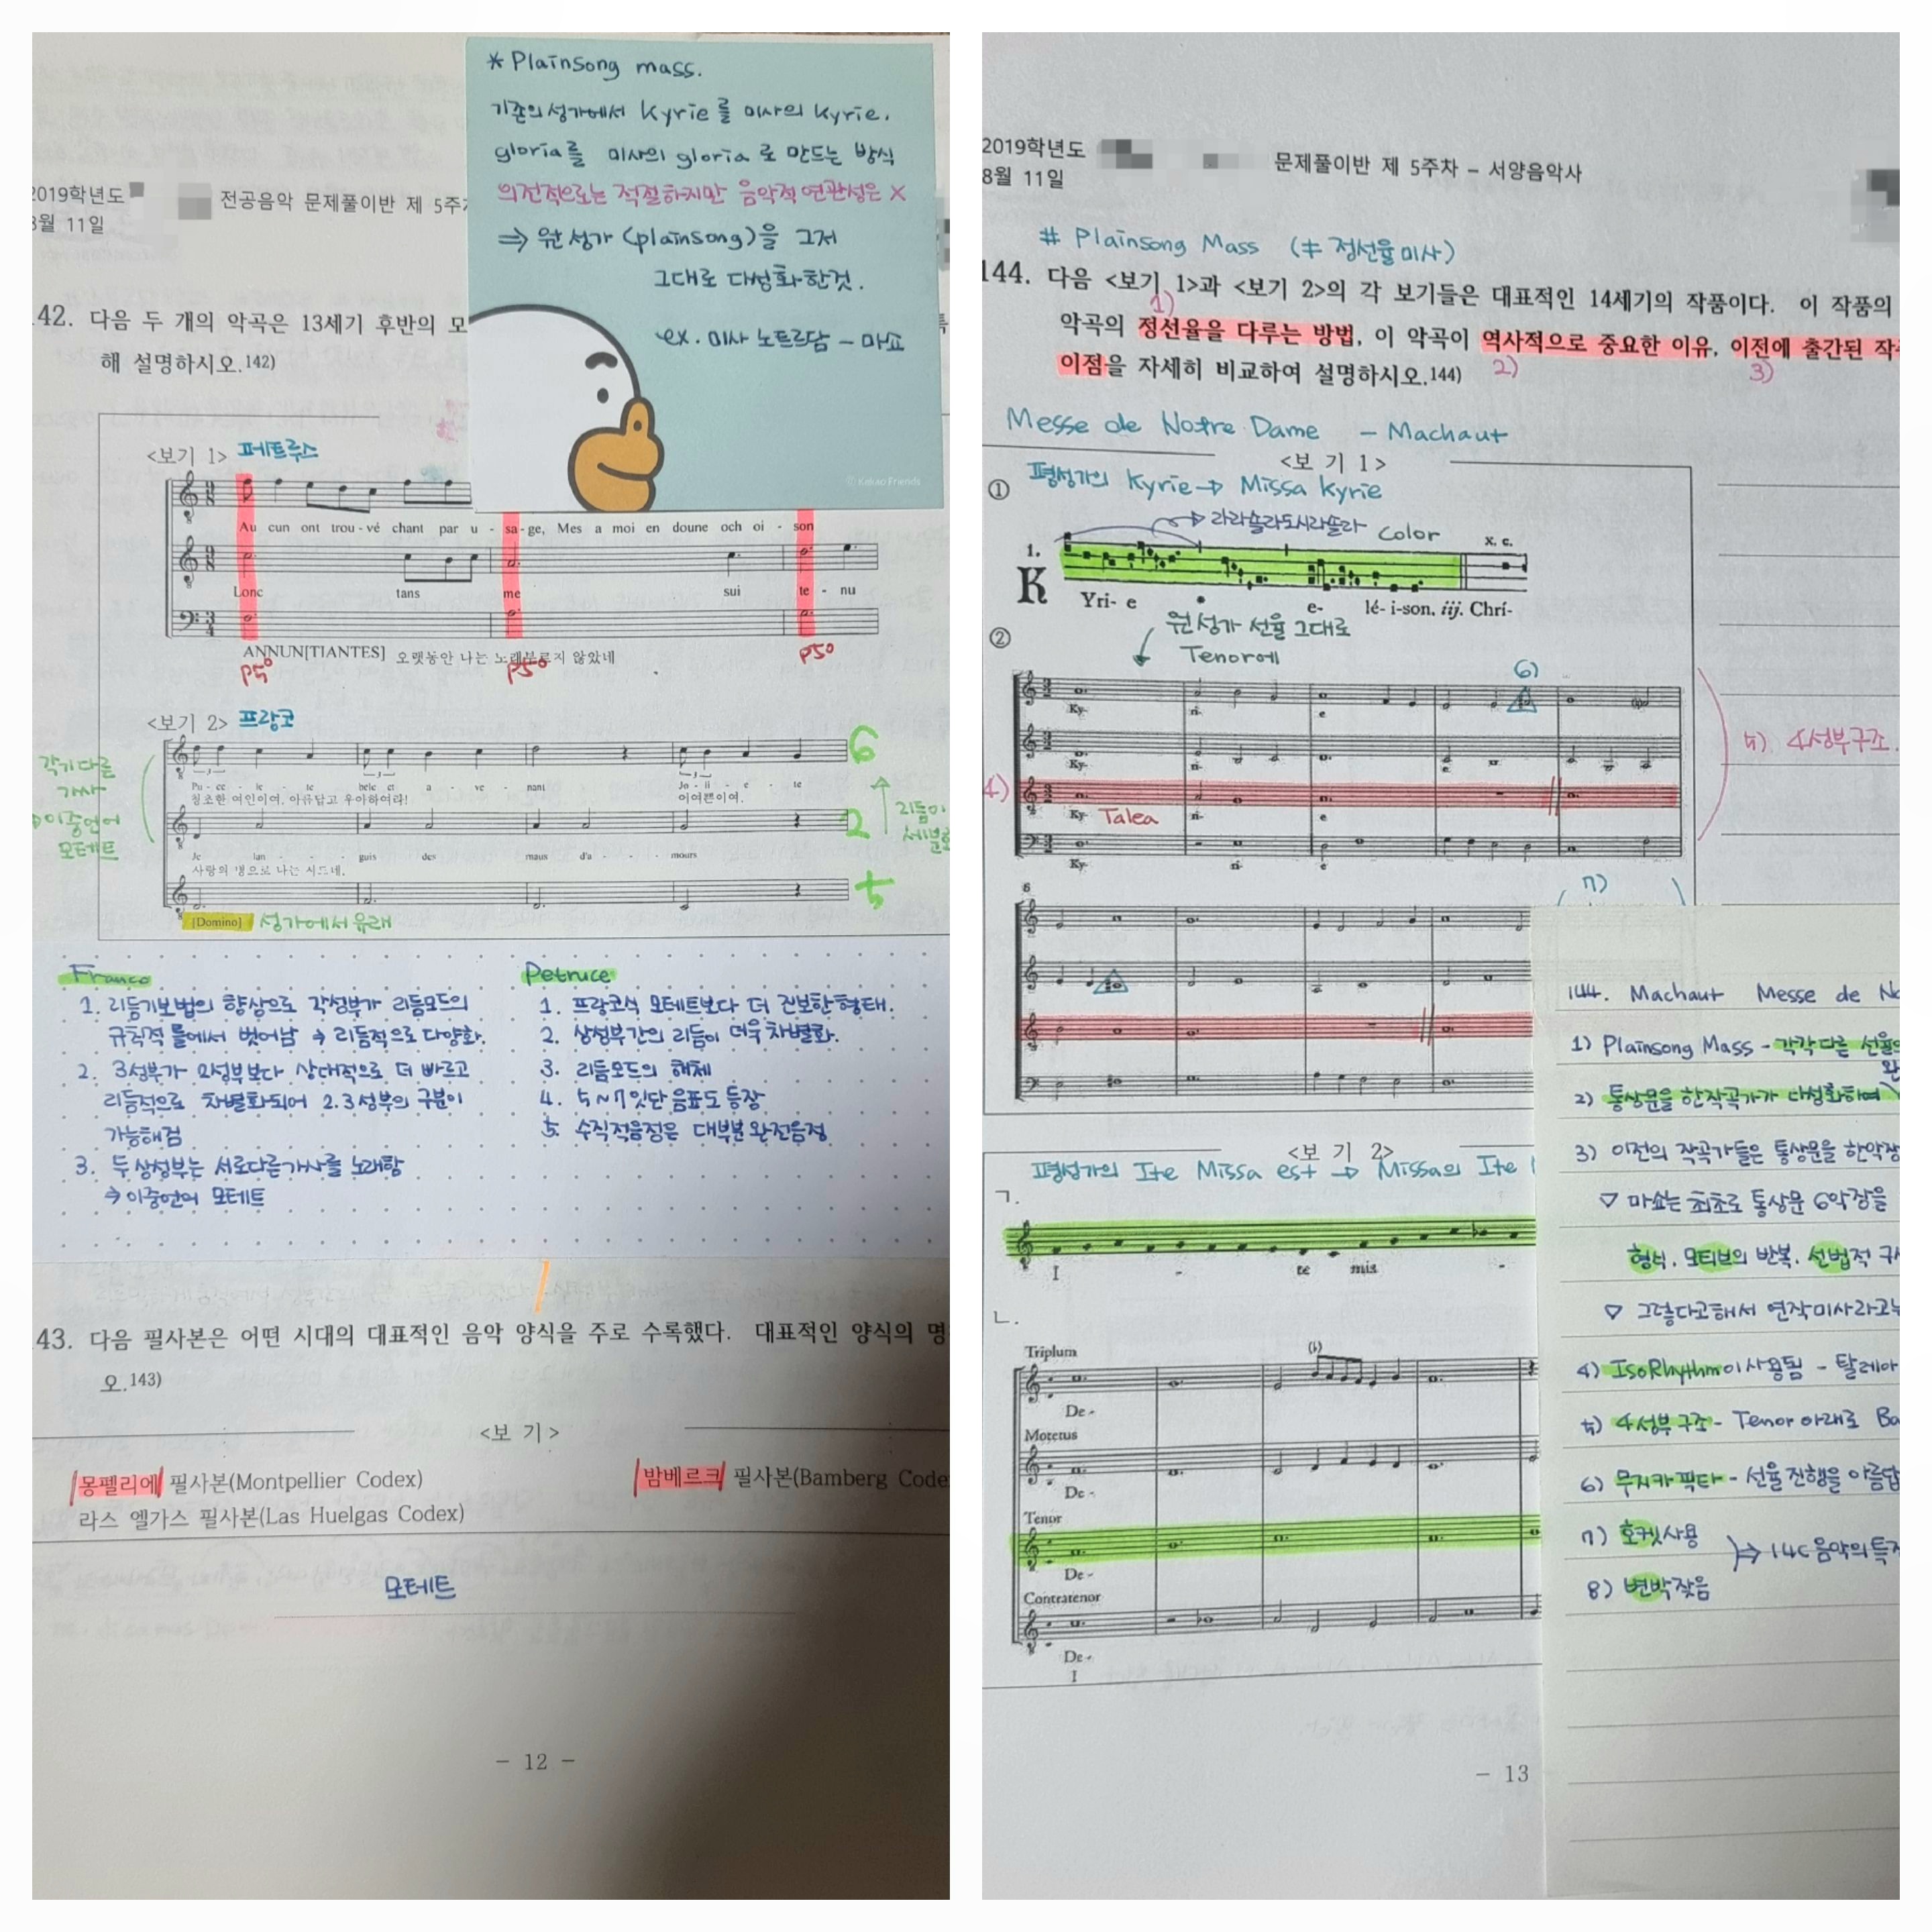 * Plainsong mass.
기존의 성가에서 Kyrie를 미사의 Kyrie.
gloria를 미사의 gloria로 만드는 방식
의전적으로는 적절하지만 음악적 연관성은 X
⇒ 원 성가 (plainsong)을 그저
그대로 다성화한것.
ex. 미사 노트르담 - 마쇼
© Kakao Friends
2019학년도 전공음악 문제풀이반 제 5주차
8월 11일
42. 다음 두 개의 악곡은 13세기 후반의 모
해 설명하시오.142)
<보기 1> 페트루스
Au cun ont trou - vé chant par u - sa - ge, Mes a moi en doune och oi - son
Lonc tans me sui te - nu
ANNUN[TIANTES] 오랫동안 나는 노래부르지 않았네
P5° P5° P5°
<보기 2> 프랑코
각기 다른
가사
이중언어
모테트
6
Pu - ce - le - te bele et a - ve - nant Jo - li - e - te
청초한 여인이여, 아름답고 우아하여라! 이여쁜이여,
2
리듬이
Je lan - - - guis des maus d'a - - - mours
사랑의 병으로 나는 시드네,
5
[Domino] 성가에서 유래
Franco
1. 리듬기보법의 향상으로 각성부가 리듬모드의
규칙적 틀에서 벗어남 → 리듬적으로 다양화.
2. 3성부가 2성부보다 상대적으로 더 빠르고
리듬적으로 차별화되어 2.3성부의 구분이
가능해짐
3. 두 상성부는 서로다른가사를 노래함
→ 이중언어 모테트
Petruce
1. 프랑코식 모테트보다 더 진보한 형태.
2. 상성부간의 리듬이 더욱 차별화.
3. 리듬모드의 해체
4. 5~7잇단 음표도 등장
5. 수직적음정은 대부분 완전음정
43. 다음 필사본은 어떤 시대의 대표적인 음악 양식을 주로 수록했다. 대표적인 양식의 명
오.143)
<보 기>
몽펠리에 필사본(Montpellier Codex) 밤베르크 필사본(Bamberg Code
라스 엘가스 필사본(Las Huelgas Codex)
모테트
- 12 -
2019학년도 문제풀이반 제 5주차 - 서양음악사
8월 11일
# Plainsong Mass (≠ 정선율미사)
144. 다음 <보기 1>과 <보기 2>의 각 보기들은 대표적인 14세기의 작품이다. 이 작품의
1)
악곡의 정선율을 다루는 방법, 이 악곡이 역사적으로 중요한 이유, 이전에 출간된 작
이점을 자세히 비교하여 설명하시오.144)
2) 3)
Messe de Notre Dame - Machaut
<보 기 1>
① 평성가의 Kyrie → Missa Kyrie
→ 라라쏠라도시라쏠라 Color
1. x. c.
K Yri- e e- lé- i-son. iij. Chrí-
② 원 성가 선율 그대로
Tenor에
6)
Ky- ri- e
Ky- ri- e
4)
Ky- Talea ri- e
Ky- ri- e
5) 4성부구조.
6
7)
<보 기 2>
평성가의 Ite Missa est → Missa의 Ite
ㄱ.
I - te mis -
ㄴ.
Triplum
De -
Motetus
De -
Tenor
De -
Contratenor
De -
I
144. Machaut Messe de No
1) Plainsong Mass - 각각 다른 선율
2) 통상문을 한작곡가가 다성화하여
3) 이전의 작곡가들은 통상문을 한악장
▽ 마쇼는 최초로 통상문 6악장을
형식. 모티브의 반복. 선법적 구
▽ 그렇다고해서 연작미사라고
4) IsoRhythm이 사용됨 - 탈레아
5) 4성부구조 - Tenor 아래로 Ba
6) 무지카 픽타 - 선율 진행을 아름답
7) 호켓사용
⇒ 14C 음악의 특
8) 변박 잦음
- 13